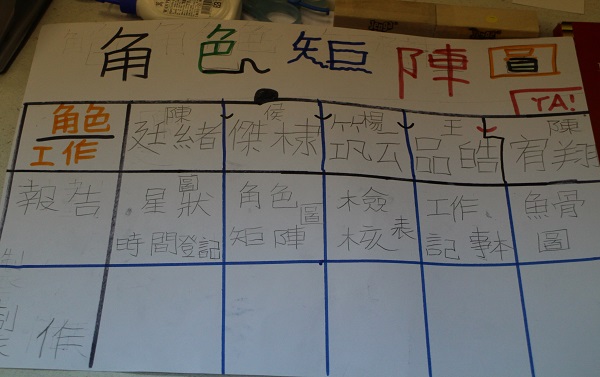 角色矩陣圖
YA!
角色
工作
陳廷緒
侯傑棣
楊筑云
王品皓
陳宥翔
報告
星狀圖
時間登記
角色
矩陣圖
檢
核表
工作
記事本
魚骨
圖
製作